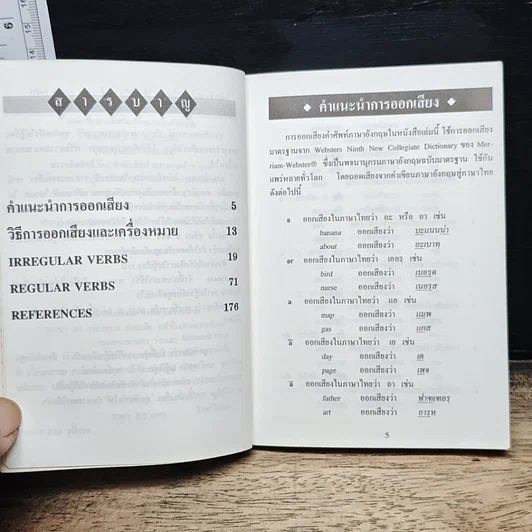 6
สารบาญ
คำแนะนำการออกเสียง 5
วิธีการออกเสียงและเครื่องหมาย 13
IRREGULAR VERBS 19
REGULAR VERBS 71
REFERENCES 176
คำแนะนำการออกเสียง
การออกเสียงคำศัพท์ภาษาอังกฤษในหนังสือเล่มนี้ ใช้การออกเสียง
มาตรฐานจาก Websters Ninth New Collegiate Dictionary ของ Mer-
riam-Webster® ซึ่งเป็นพจนานุกรมภาษาอังกฤษฉบับมาตรฐาน ใช้กัน
แพร่หลายทั่วโลก โดยถอดเสียงจากคำเขียนภาษาอังกฤษสู่ภาษาไทย
ดังต่อไปนี้
ə ออกเสียงในภาษาไทยว่า อะ หรือ อา เช่น
banana ออกเสียงว่า บะแนนน่า
about ออกเสียงว่า อะเบาทฺ
ər ออกเสียงในภาษาไทยว่า เออรฺ เช่น
bird ออกเสียงว่า เบอรฺด
nurse ออกเสียงว่า เนอรฺส
a ออกเสียงในภาษาไทยว่า แอ เช่น
map ออกเสียงว่า แมพ
gas ออกเสียงว่า แกส
ā ออกเสียงในภาษาไทยว่า เอ เช่น
day ออกเสียงว่า เด
page ออกเสียงว่า เพจ
ä ออกเสียงในภาษาไทยว่า อา เช่น
father ออกเสียงว่า
art ออกเสียงว่า อารฺท
5